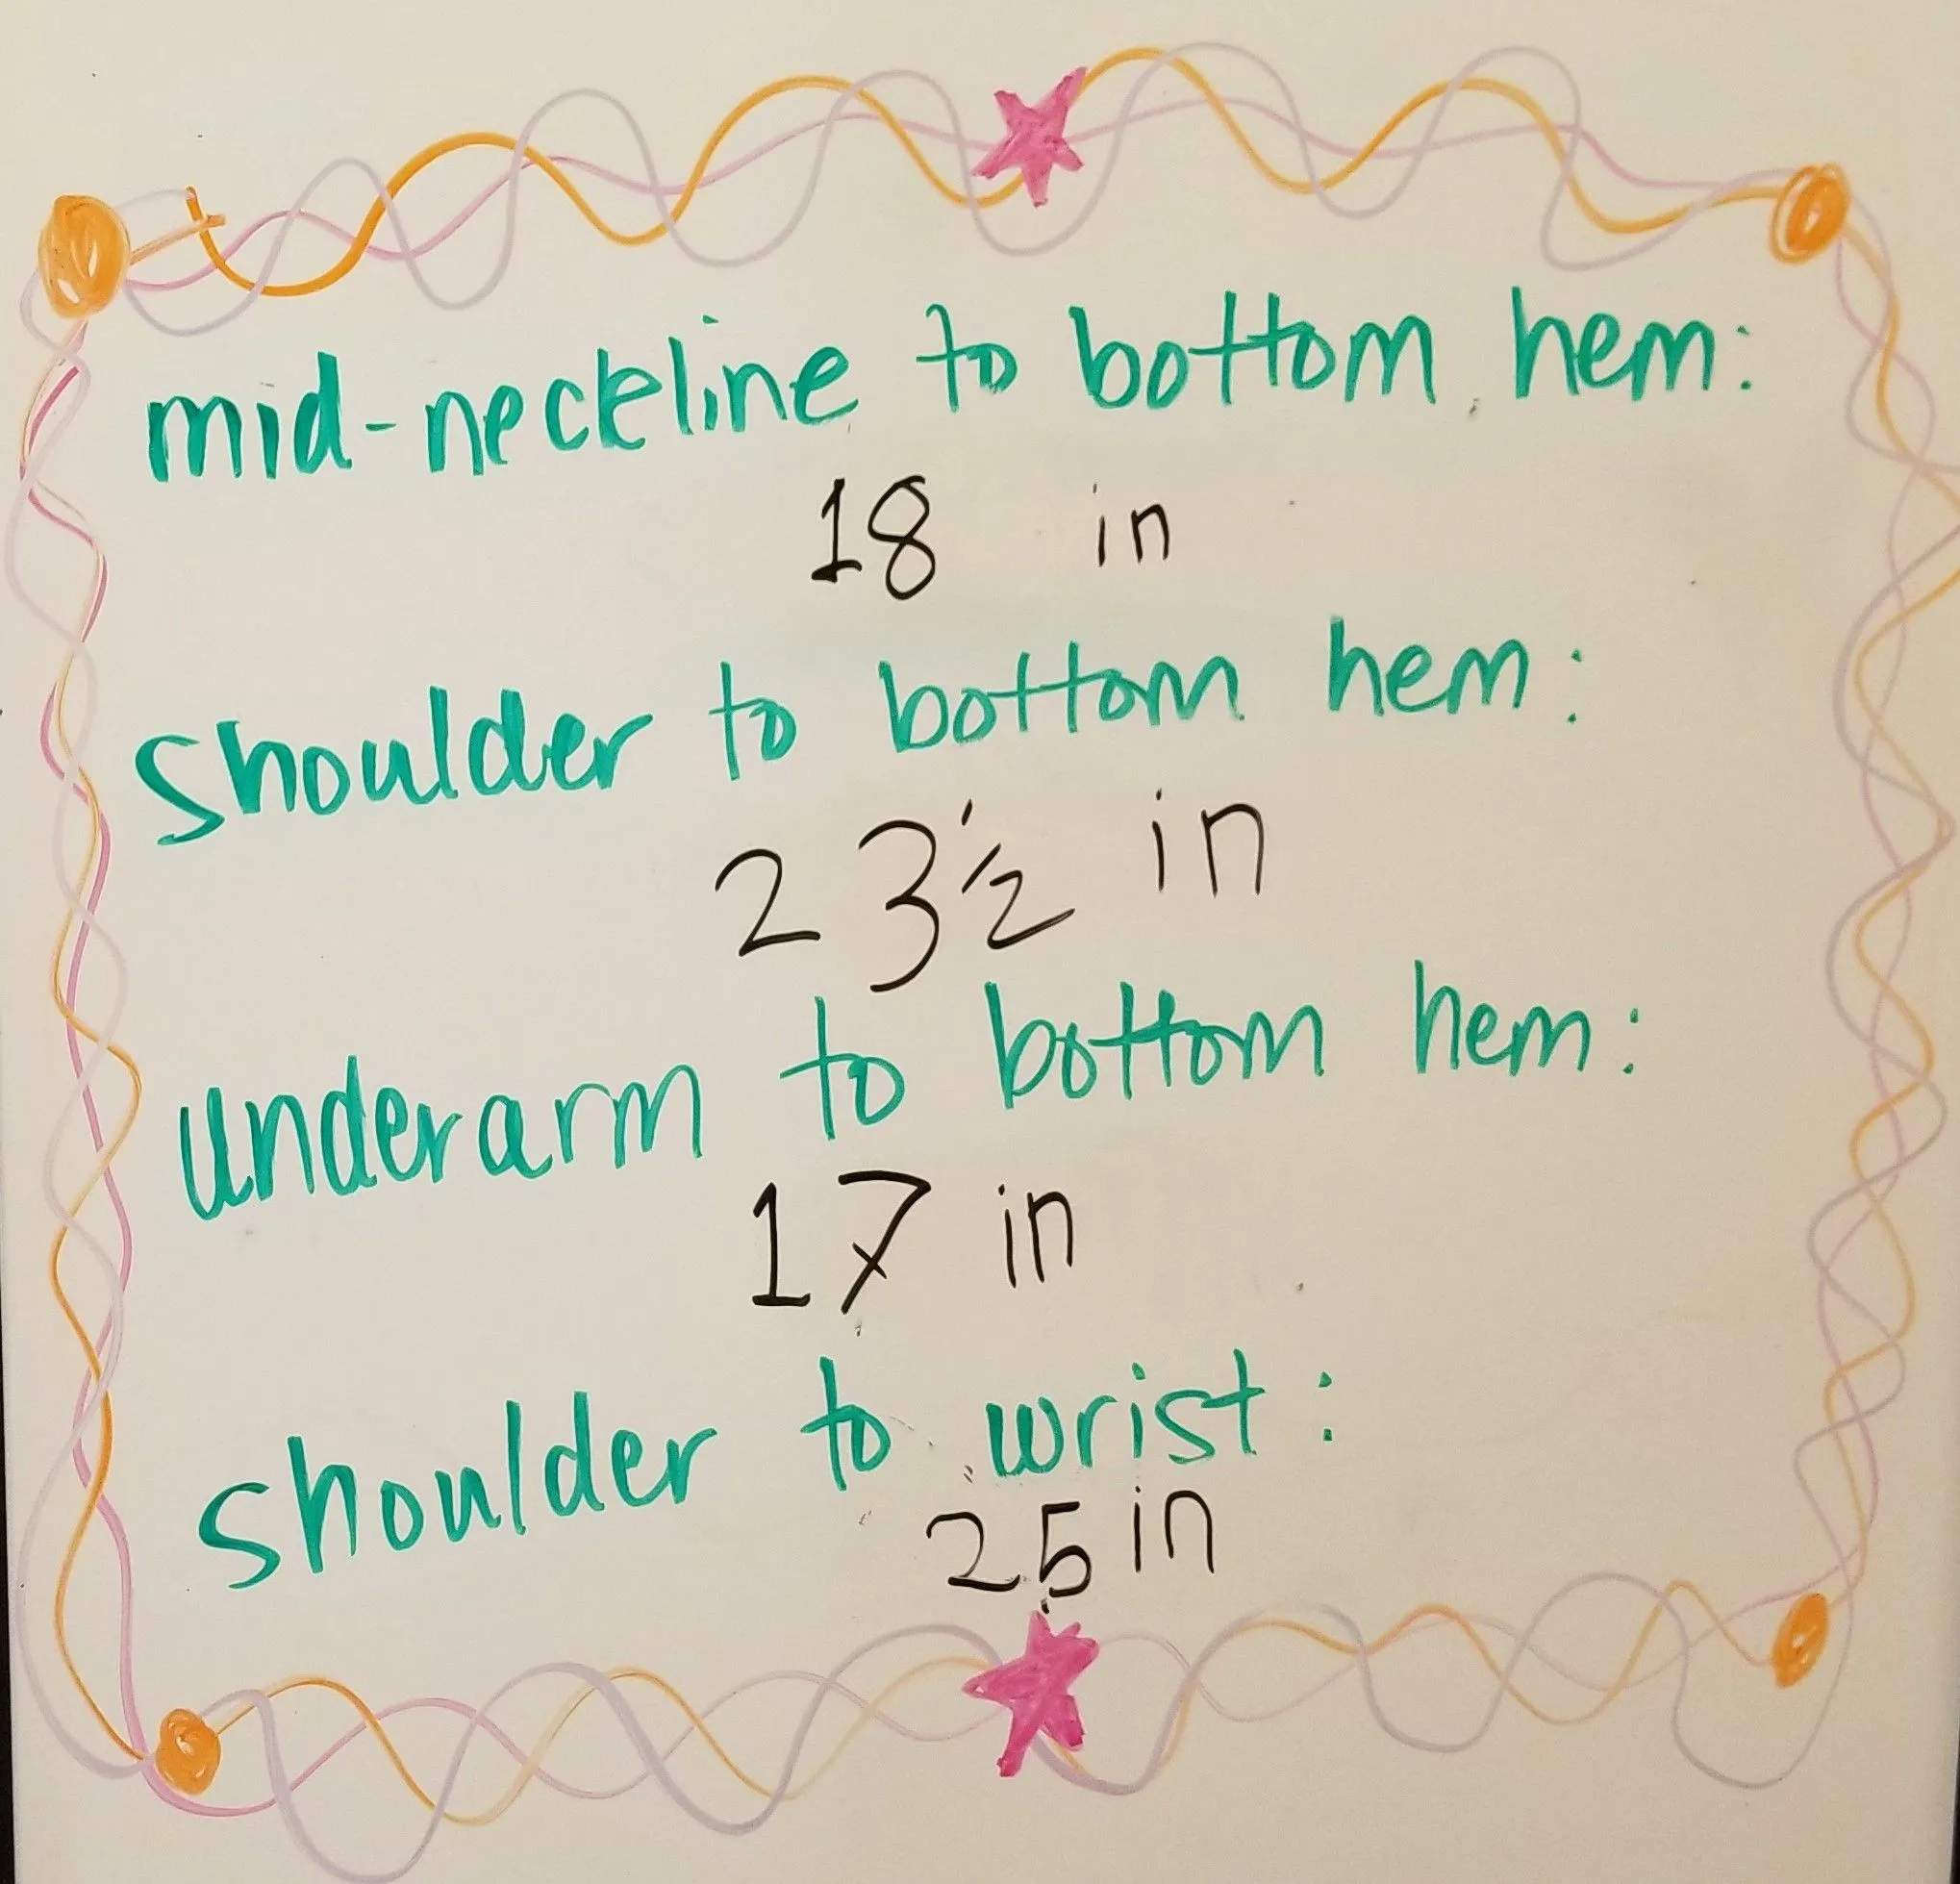 mid-neckline to bottom hem:
18 in
shoulder to bottom hem:
23 1/2 in
underarm to bottom hem:
17 in
shoulder to wrist:
25 in